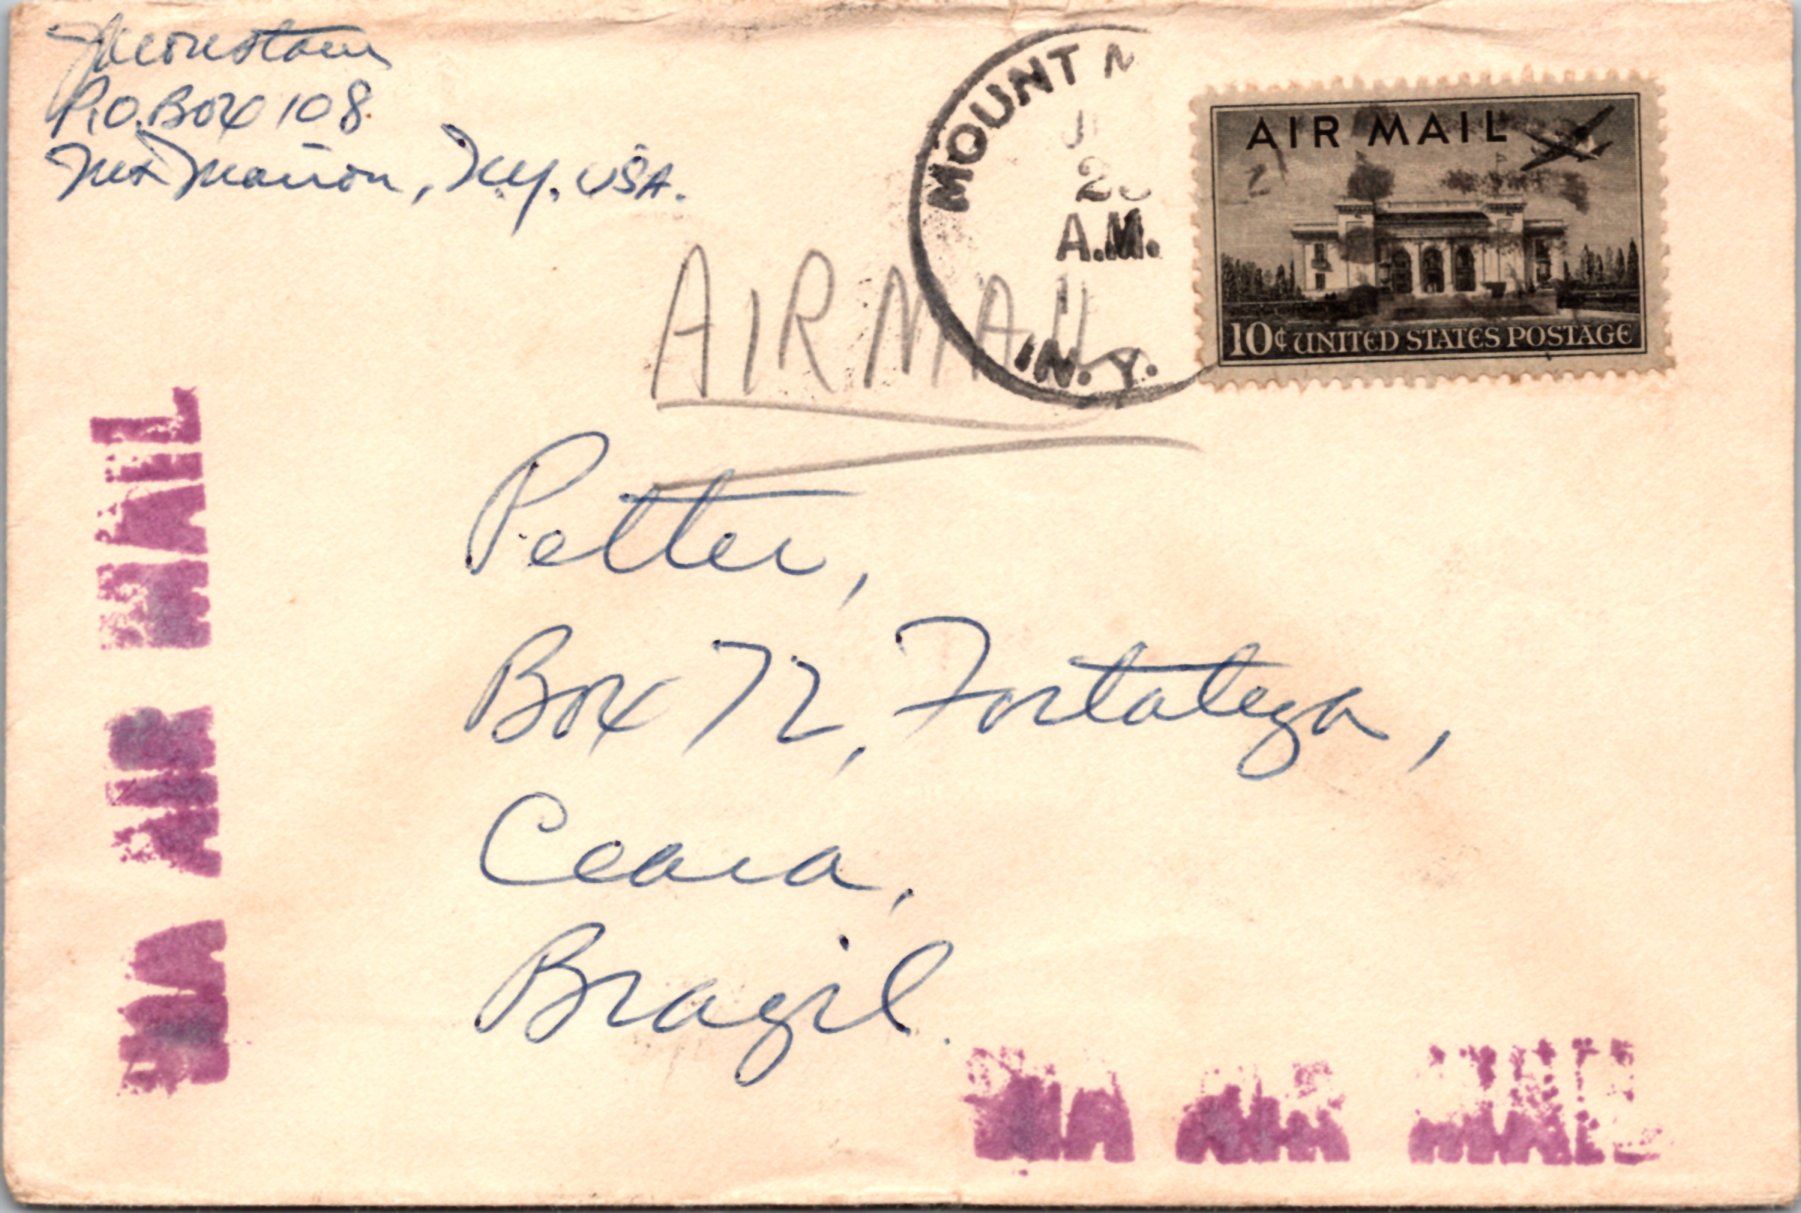 P.O. Box 108
Mt Marion, N.Y. USA.
MOUNT M
J
A.M.
N. Y.
AIR MAIL
10¢ UNITED STATES POSTAGE
AIRMAIL
Petter,
Box 72, Fortaleza,
Ceara,
Brazil.
VIA AIR MAIL
VIA AIR MAIL